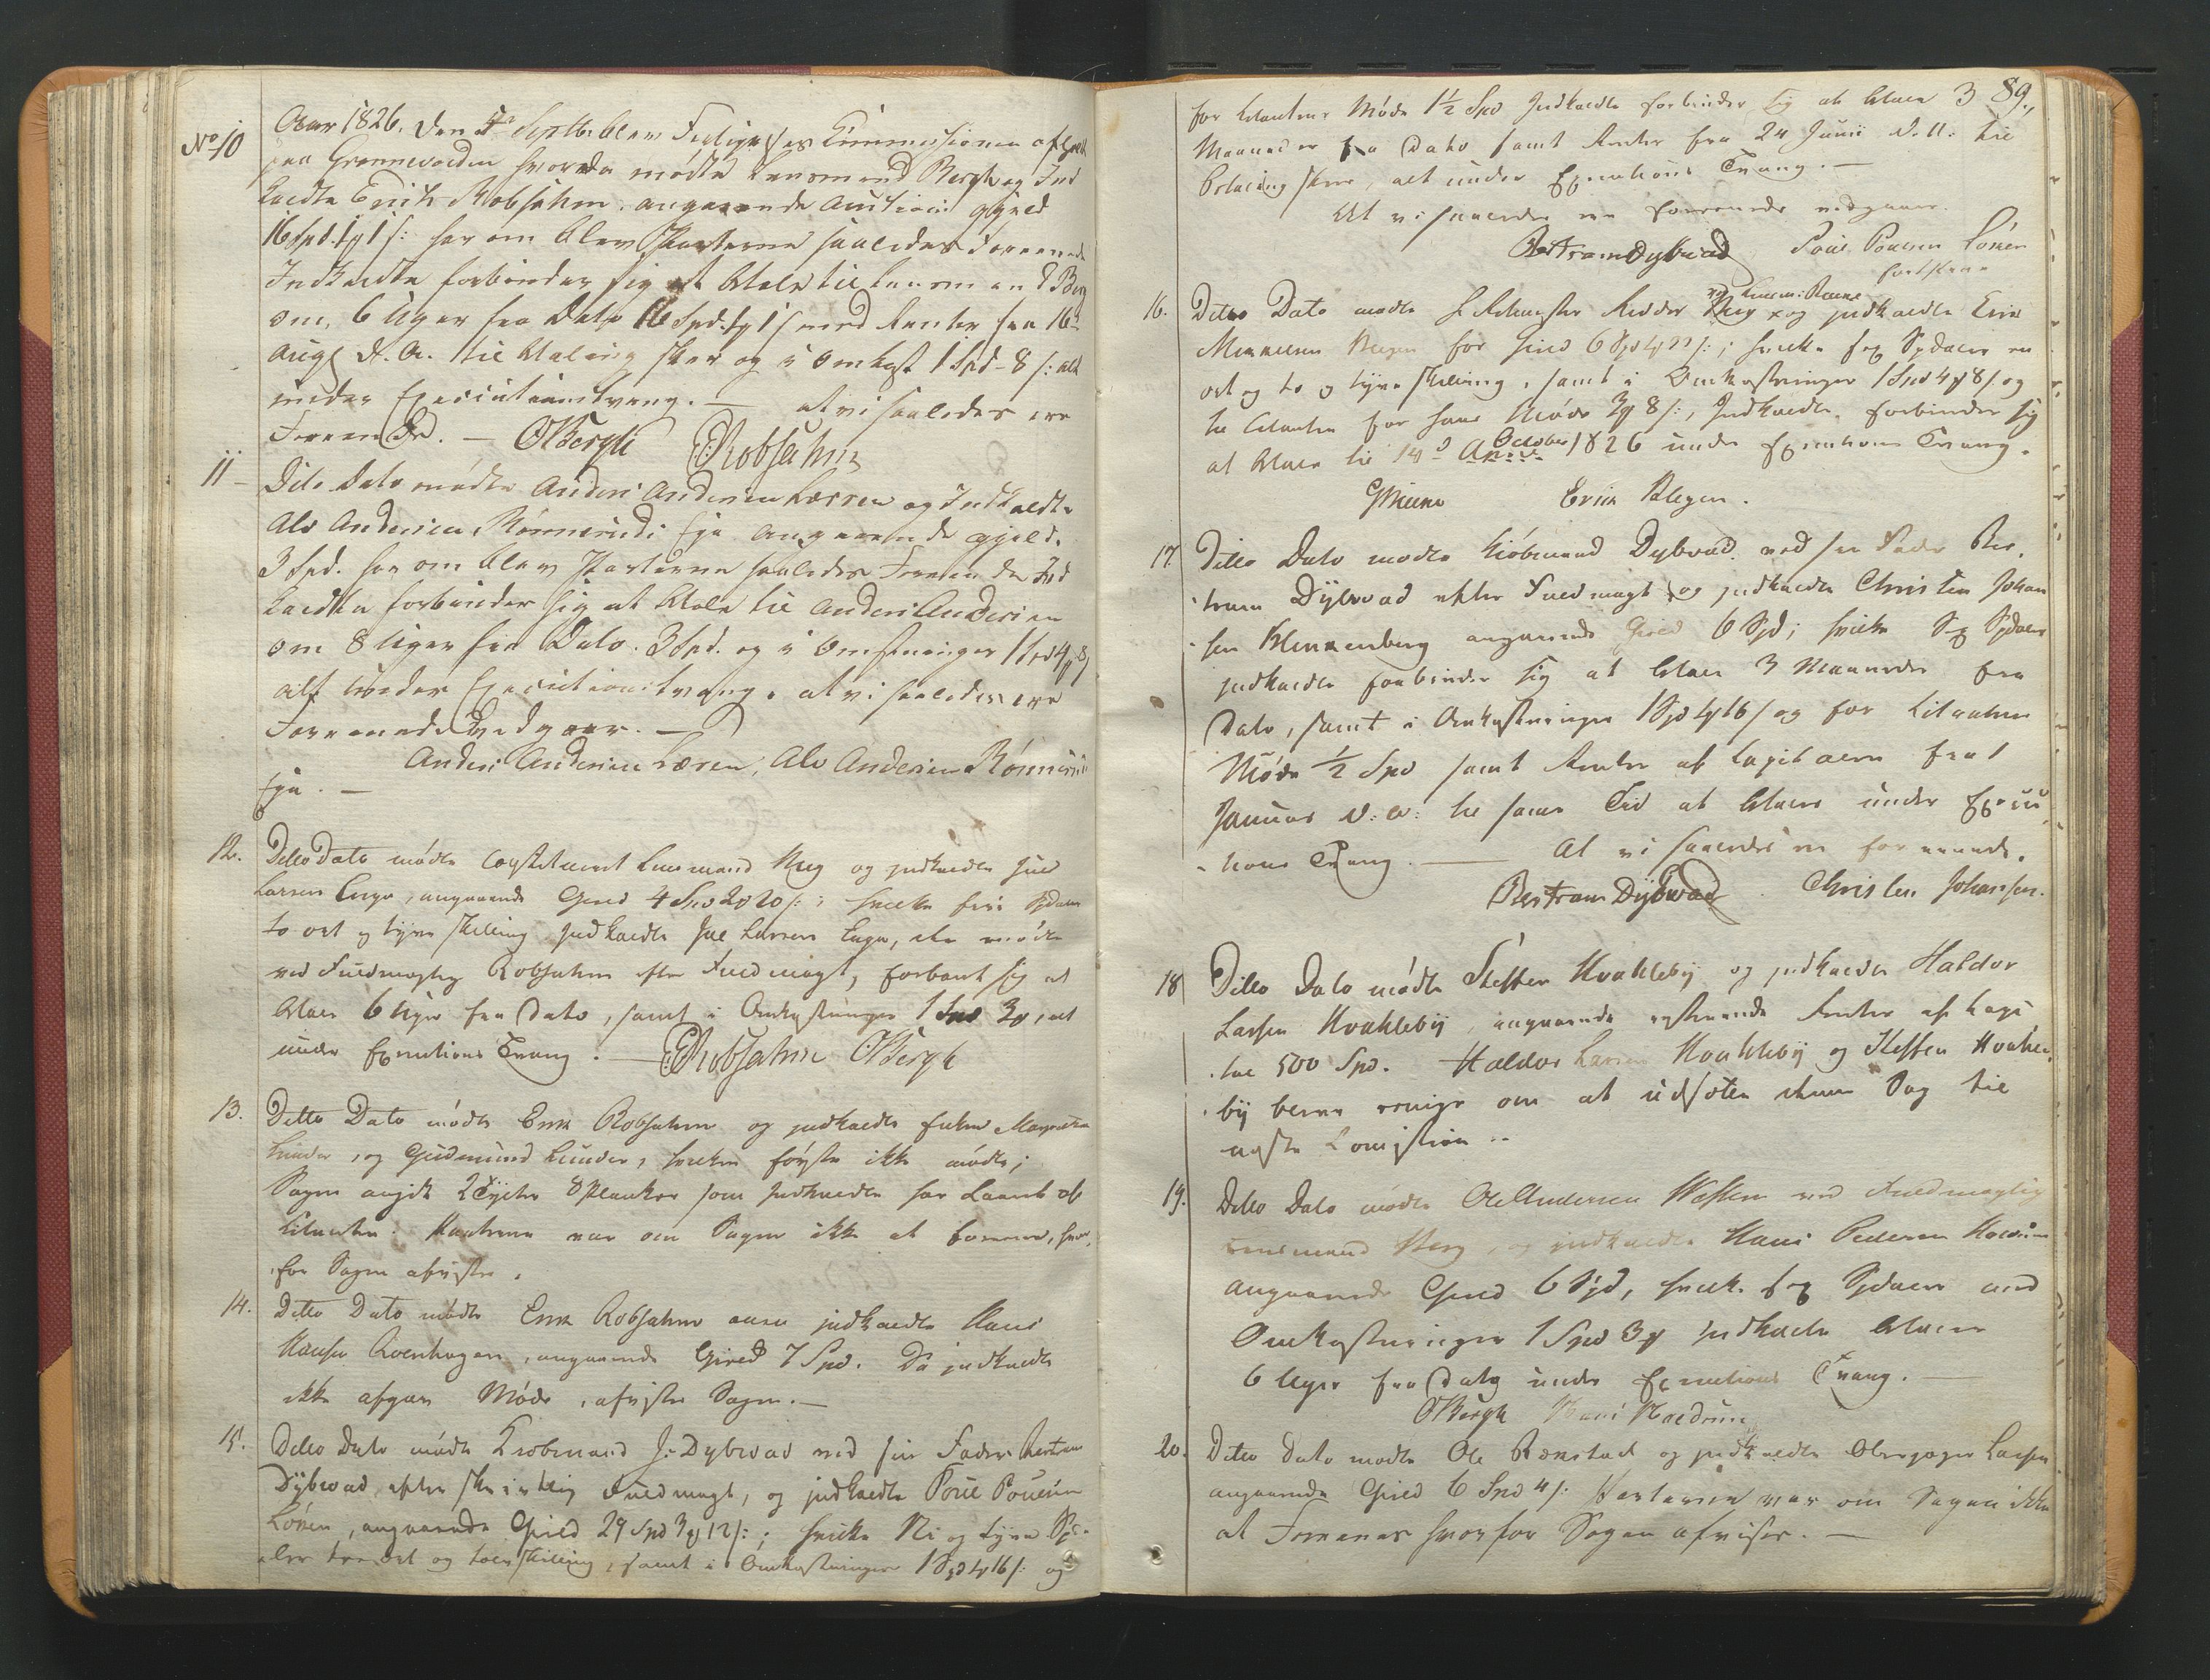 No 10 Aar 1826. den 4de Septbr. blev Forligelses Commissionen afholdt
paa Grønnevolden hvorda mødte Lensmand Bergh og Ind
kaldte Erich Robsahm, angaaende Auctions gjæld
16 Spd. 1 # 1 s: her om blev Parterne saaledes Foreenede
Indkaldte forbinder sig at betale til Lensmand Berg
om 6 Uger fra Dato 16 Spd. 1 # 1 s med Renter fra 16de
Augt d. A. til betaling skeer og i Omkost 1 Spd - 8 s: alt
under Executionstvang. — at vi saaledes ere
Foreenede. — OBergh ERobsahm
11 – Dito Dato mødte Anders Andersen Læsren og Indkaldte
Alv Andersen Rønnerud: Eje angaaende gjeld.
3 Spd. her om blev Parterne saaledes Foreenede Ind
kaldte forbinder sig at betale til Anders Andersen
om 8 Uger fra Dato. 3 Spd. og i Omkostninger 1 Spd 4 # 8 s
alt under Executionstvang. at vi saaledes ere
Foreenede vedgaaer. —
Anders Andersen Læren, Alv Andersen Rønnerud
Eje. —
12. Ditto Dato mødte Constitueret Lensmand Berg og Indkaldte Juel
Larsen Enger, angaaende Gield 4 Spd 2 # 20 s: hvilke fire Spdaler
to ort og tyve skilling Indkaldte Juel Larsen Enger, der mødte
ved Fuldmægtig Robsahm efter Fuldmagt, forbandt sig at
betale 6 Uger fra Dato, samt i Omkostninger 1 Spd 3 #, alt
under Executions Tvang. — ERobsahm OBergh
13. Ditto Dato mødte Erik Robsahm og Indkaldte Enken Margrethe
Lunder, og Gudmund Lunder, hvilken første ikke mødte;
Sagen angik 2 Tylter 8 Planker som Indkaldte har Laant af
Citanten. Parterne var om Sagen ikke at forenes, hvor
for Sagen afvistes.
14. Ditto Dato mødte Erik Robsahm samt Indkaldte Hans
Hansen Roenhagen, angaaende Gield 7 Spd. Da Indkaldte
ikke afgav Møde, afvistes Sagen. —
15. Ditto Dato mødte Kiøbmand J: Dybwad ved sin Fader Bertram
Dybwad, efter skriftlig Fuldmagt, og Indkaldte Poul Poulsen
Lønen, angaaende Gield 29 Spd 3 # 12 s:; hvilke Ni og tyve Spd
aler tre ort og tolv skilling, samt i Omkostninger 1 Spd 4 # 16 s: og
89.
for Citantens Møde 1½ Spd Indkaldte forbinder sig at betale 3
Maaneder fra Dato samt Renter fra 24 Junii d. A: til
Betaling skeer, alt under Executions Tvang. —
At vi saaledes ere foreenede vedgaaes.
Bertram Dybwad Poul Poulsen Lønen
16. Ditto Dato mødte Ridder og Indkaldte Erik
Blegen for Gield 6 Spd 1 # 22 s:; hvilke sex Spdaler en
ort og to og tyve skilling, samt i Omkostninger 1 Spd 4 # 8 s og
til Citanten for hans Møde 3 # 8 s:, Indkaldte forbinder sig
at betale til 14de October 1826 under Executions Tvang.
Erik Blegen.
17. Ditto Dato mødte Kiøbmand Dybwad ved sin Fader Ber
tram Dybwad efter Fuldmagt, og Indkaldte Christen Johan
sen Blennenberg angaaende Gield 6 Spd; hvilke Sex Spdaler
Indkaldte forbinder sig at betale 3 Maaneder fra
Dato, samt i Omkostninger 1 Spd 4 # 16 s og for Citantens
Møde ½ Spd samt Renter af Capitalen fra 1
Januar d: A: til samme Tid at betale under Execu
tions Tvang. — At vi saaledes ere foreenede.
Bertram Dybwad Christen Johansen.
18 Ditto Dato mødte Steffen Hvahleby og Indkaldte Haldor
Larsen Hvahleby, angaaende resterende Renter af Capi
tal 500 Spd. Haldor Larsen Hvahleby og Steffen Hvahle
by bleve enige om at udsætte denne Sag til
neste Comission. –
19. Ditto Dato mødte Ole Andersen ved Fuldmægtig
Lensmand Berg, og Indkaldte Hans Pedersen Koldrum
angaaende Gield 6 Spd, hvilke sex Spdaler med
Omkostninger 1 Spd 3 # Indkaldte betaler
6 Uger fra Dato under Executions Tvang. —
OBergh Hans Koldrum
20. Ditto Dato mødte Ole Rønstad og Indkaldte Larsen
angaaende Gield 6 Spd 4 s: Parterne var om Sagen ikke
at Forenes hvorfor Sagen afvises. —